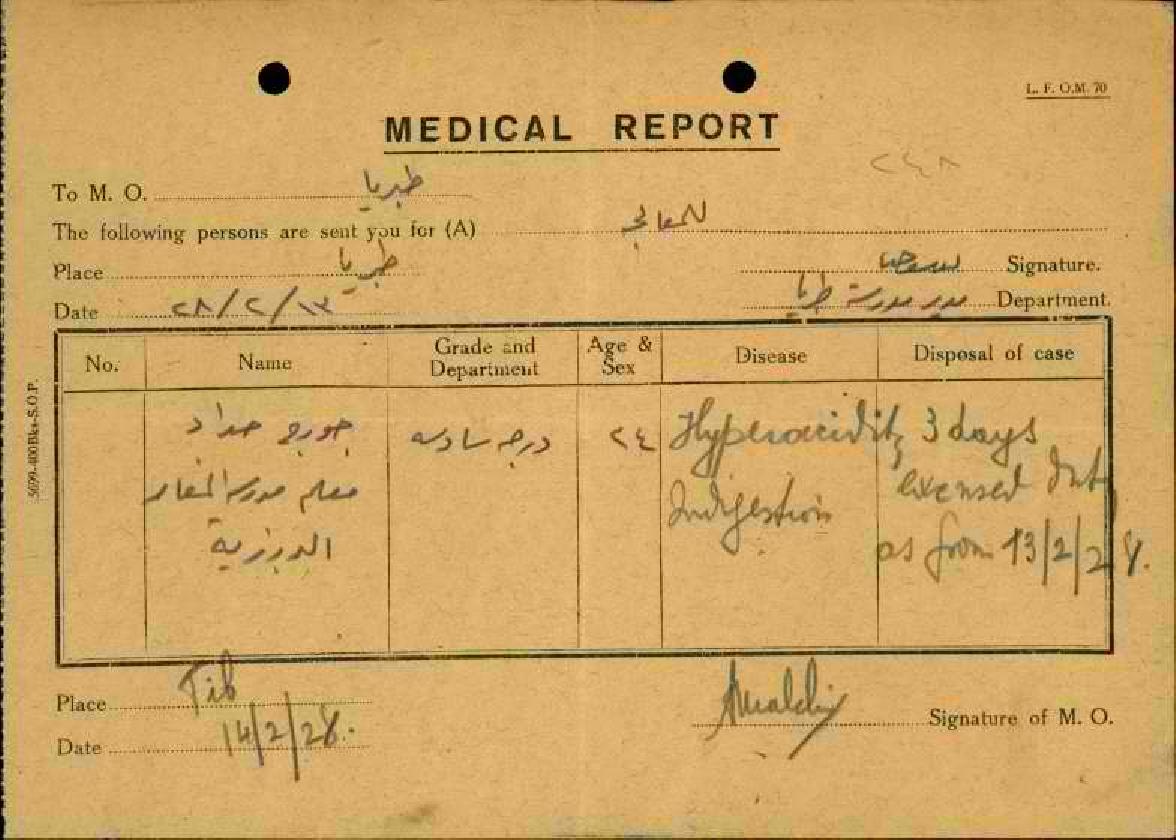 L. F. O.M. 70
MEDICAL REPORT
٢٤٨
To M. O. طبريا
The following persons are sent you for (A) للمعالجة
Place طبريا Signature.
Date ١٣/٢/٢٨ مدير مدرسة طبريا Department.
No. Name Grade and Department Age & Sex Disease Disposal of case
جورج حداد درجه سادسه ٢٤ Hyperacidity 3 days
معلم مدرسة المغار Indigestion excused
الدرزية as from 13/2/28.
5099-400Bks-S.O.P.
Place Tib
Date 14/2/28. Signature of M. O.